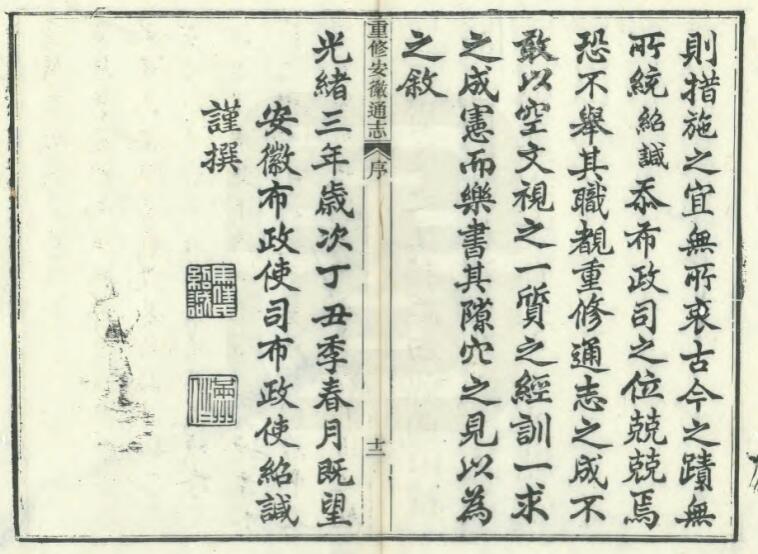 則措施之宜無所衷古今之蹟無
所統紹諴忝布政司之位兢兢焉
恐不舉其職覩重修通志之成不
敢以空文視之一質之經訓一求
之成憲而樂書其隙穴之見以為
之敘
重修安徽通志
序
十二
光緒三年歲次丁丑季春月既望
安徽布政使司布政使紹諴
謹撰